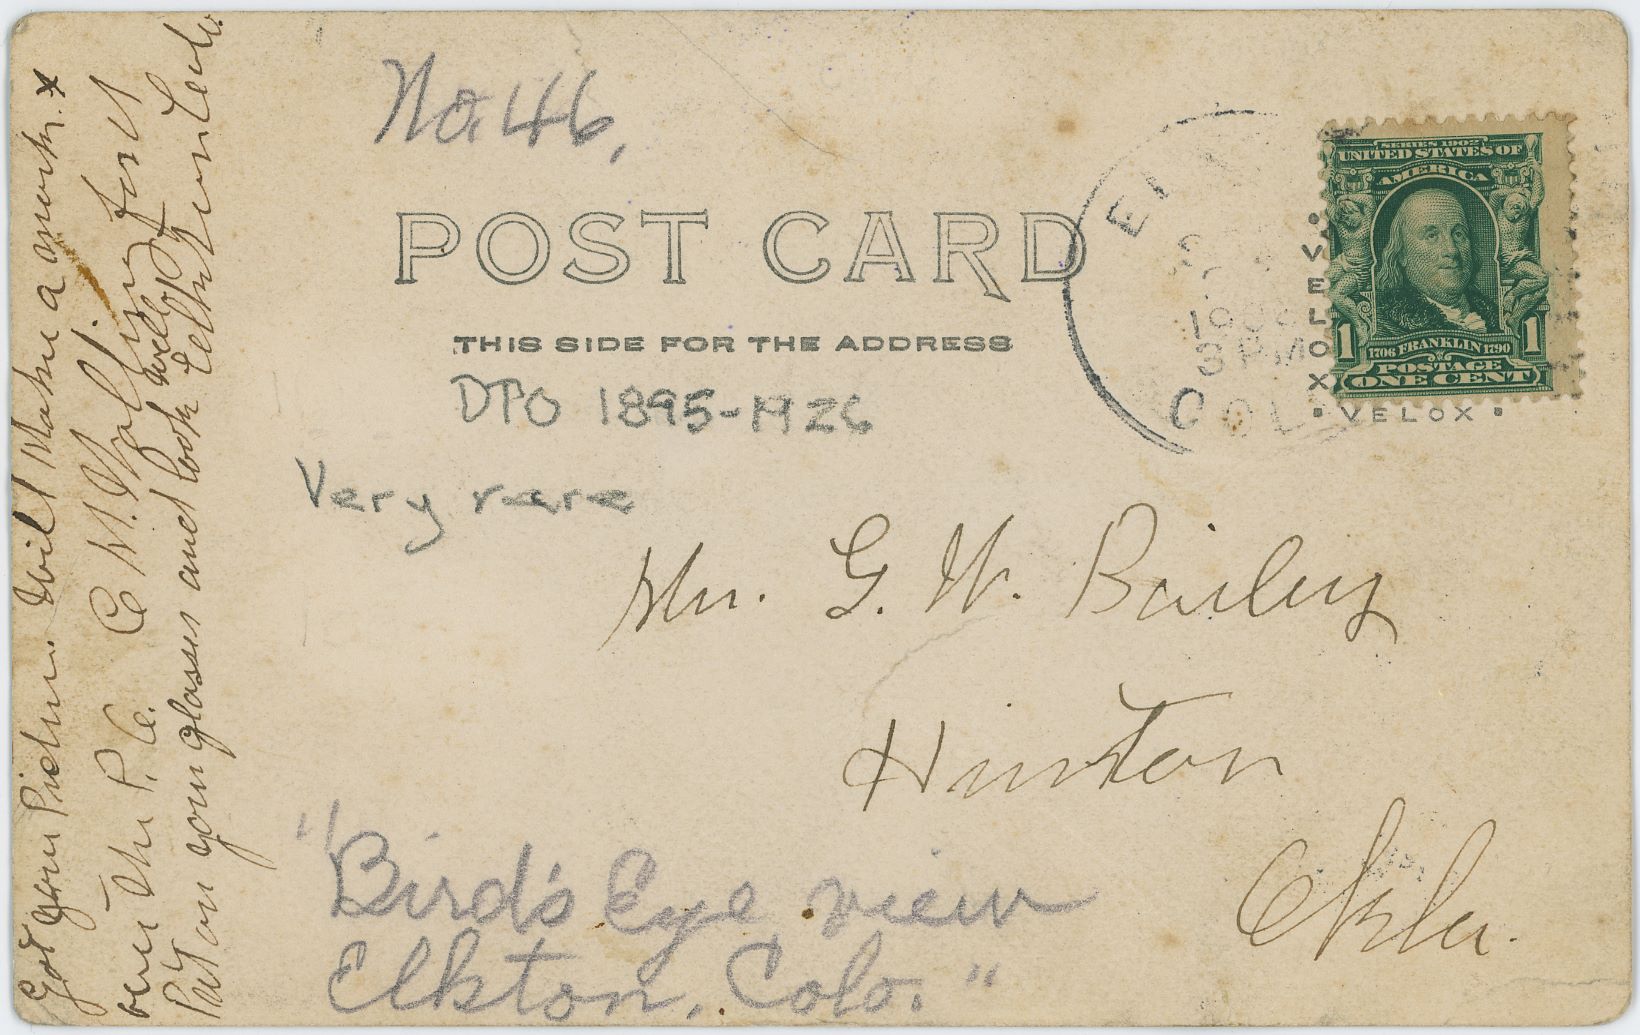 No. 46,
POST CARD
THIS SIDE FOR THE ADDRESS
DPO 1895-1926
Very rare
Mr. G. W. Bailey
Hinton
Okla.
"Bird's Eye view
Elkton, Colo."
Got your Picture. Will Make a mark x
over the P.O.
Put on your glasses and look well
Elkton Colo.
EL
190
3 PM
COL
SERIES 1902
UNITED STATES OF
AMERICA
1706 FRANKLIN 1790
POSTAGE
1 ONE CENT 1
VELOX
VELOX